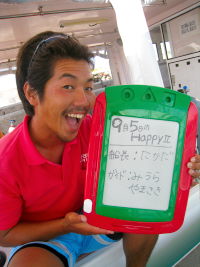 9月5日
HAPPYⅡ
船長：たかだ
ガイド：みうら
やまさき